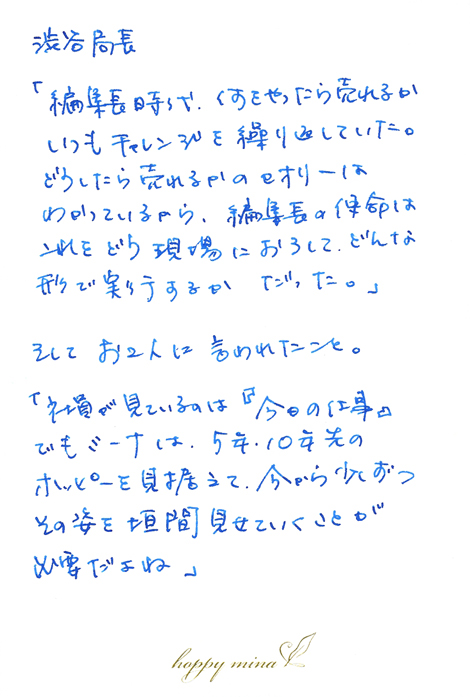 渋谷局長
「編集長時代、何をやったら売れるか
いつもチャレンジを繰り返していた。
どうしたら売れるかのセオリーは
わかっているから、編集長の使命は
それをどう現場におろして、どんな
形で実行するか だった。」
そして お2人に 言われたこと。
「社員が見ているのは『今日の仕事』
でもミーナは、5年・10年先の
ホッピーを見据えて、今から少しずつ
その姿を垣間見せていくことが
必要だよね」
happy mina